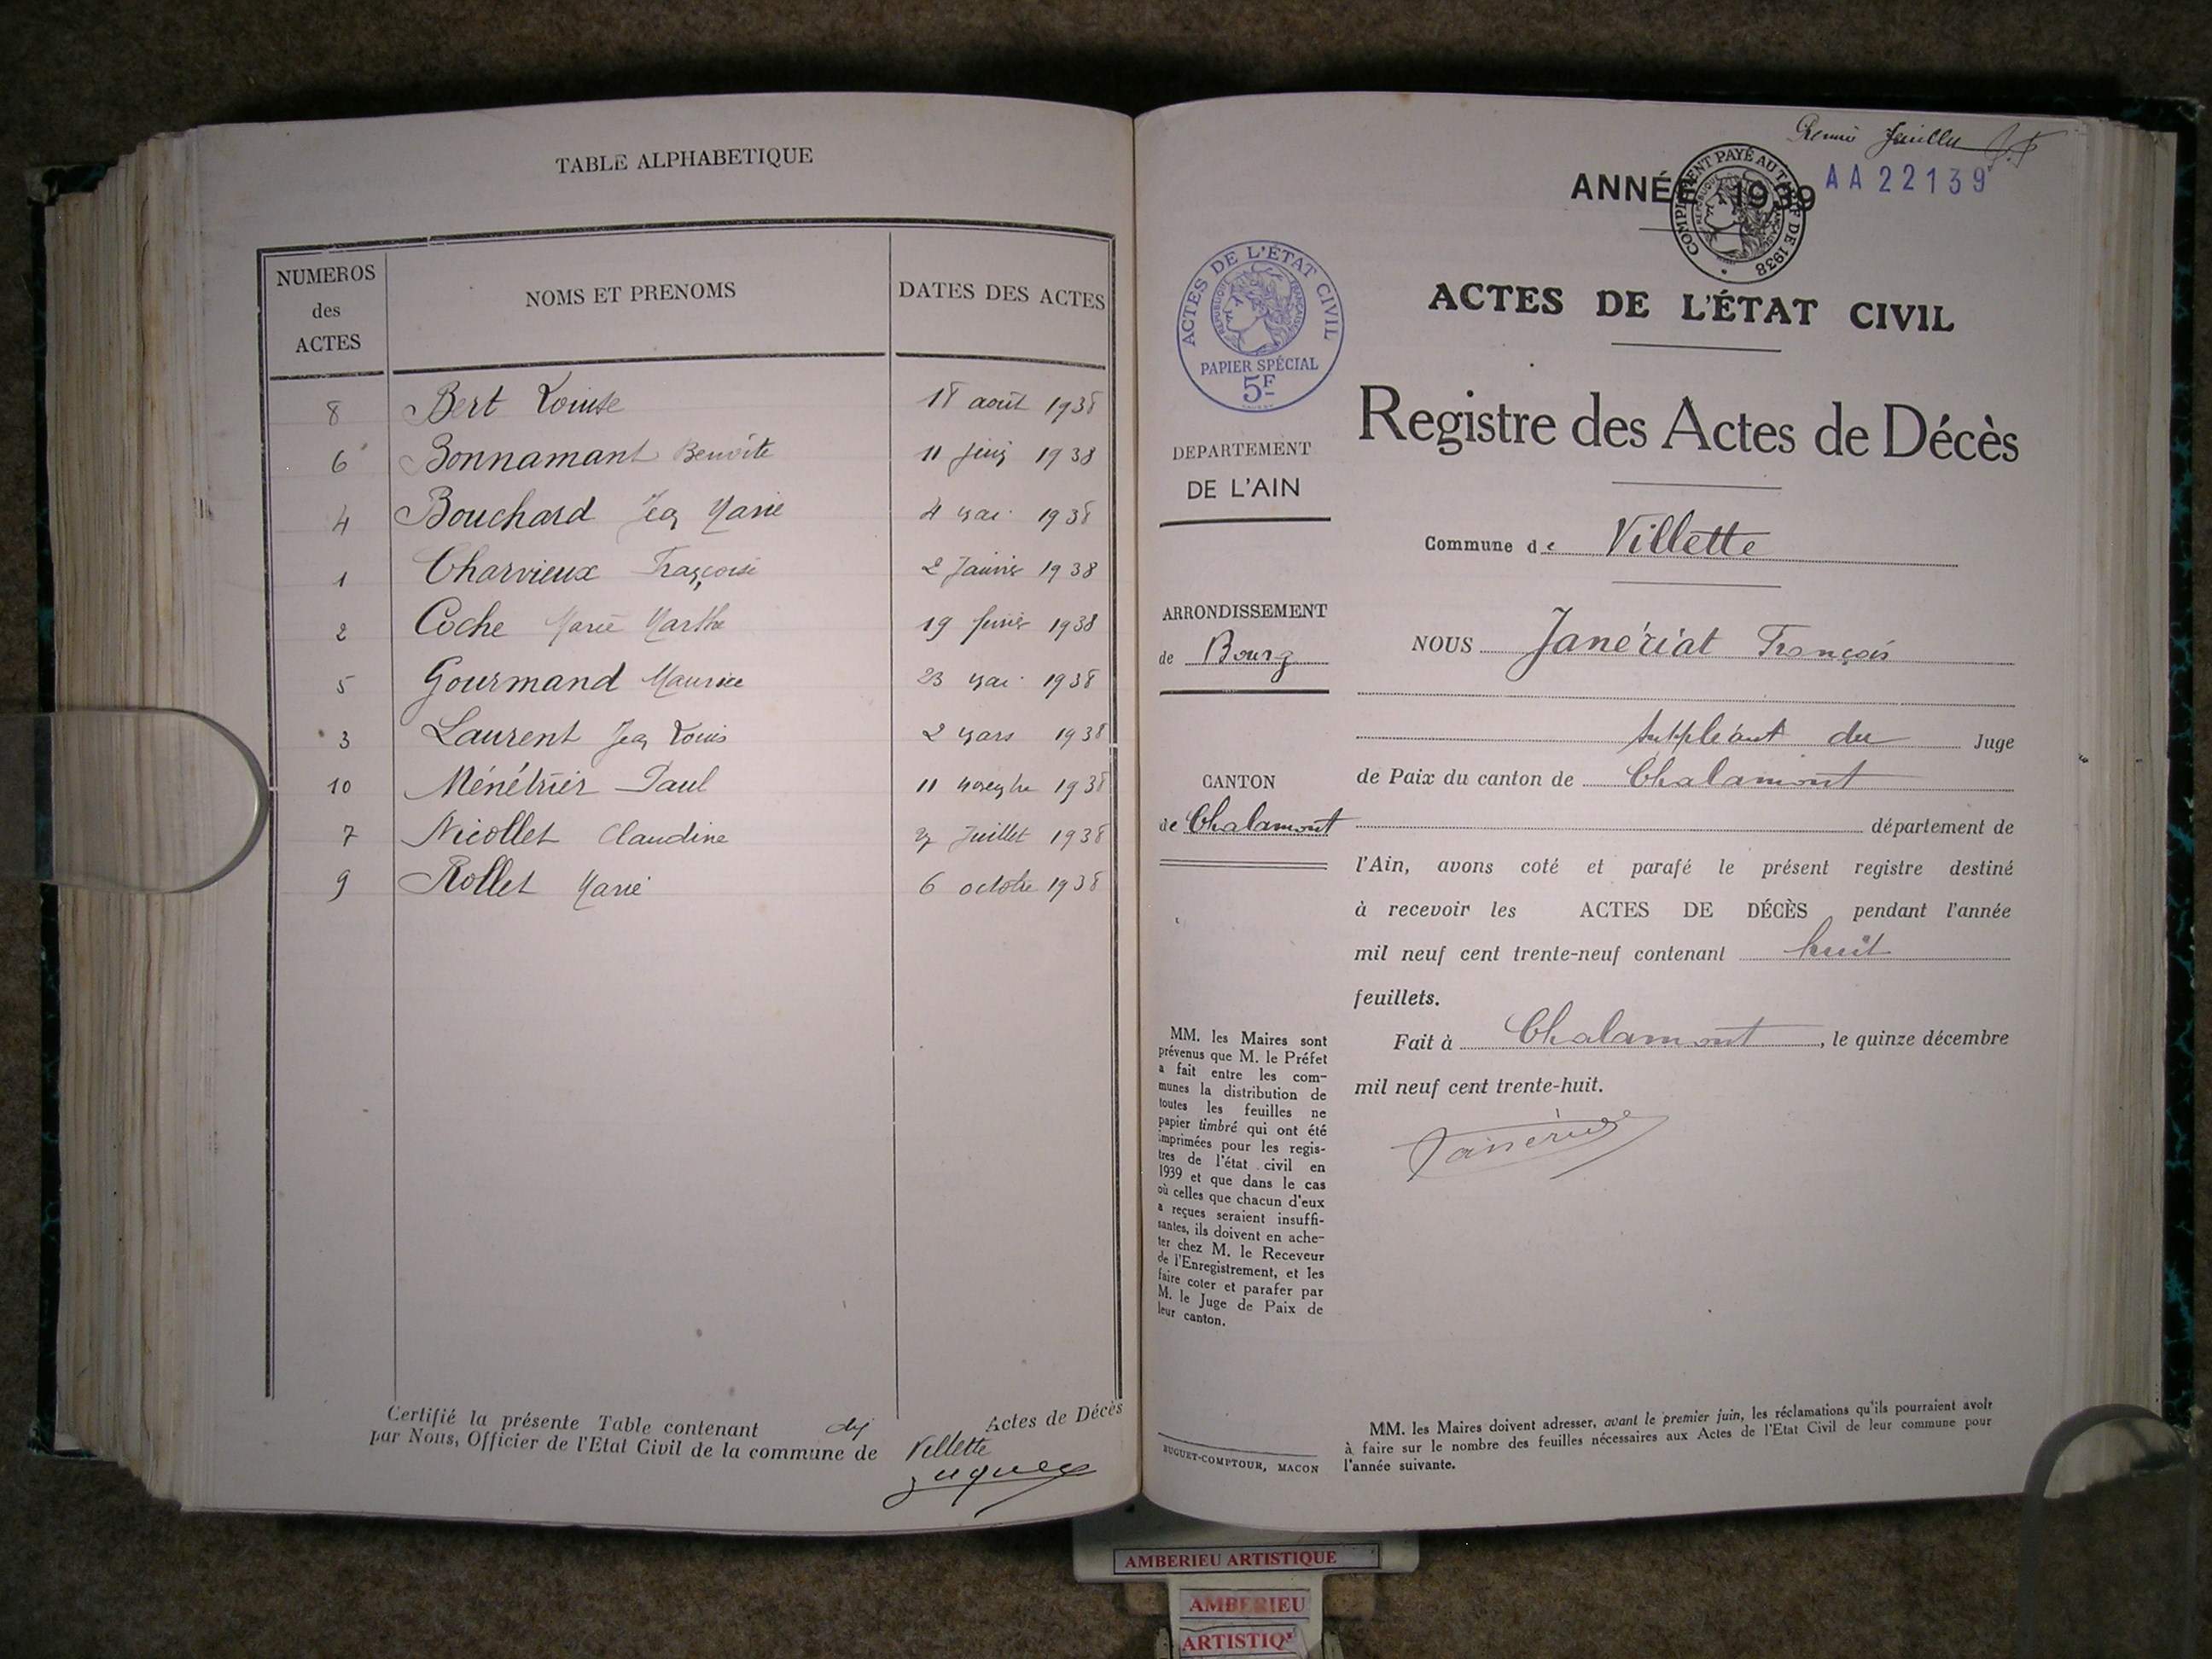 TABLE ALPHABETIQUE
NUMEROS
des
ACTES
NOMS ET PRENOMS
DATES DES ACTES
8 Bert Louise 18 août 1938
6 Bonnamant Benoîte 11 juin 1938
4 Bouchard Jean Marie 4 mai 1938
1 Charvieux Françoise 2 Janvier 1938
2 Coche Marie Marthe 19 février 1938
5 Gourmand Maurice 23 mai 1938
3 Laurent Jean Louis 2 mars 1938
10 Ménétrier Paul 11 novembre 1938
7 Nicollet Claudine 27 Juillet 1938
9 Rollet Marie 6 octobre 1938
Certifié la présente Table contenant dix Actes de Décès
par Nous, Officier de l'Etat Civil de la commune de Villette
Premier feuillet
ANNÉE 1939
COMPLÉMENT PAYÉ AU TARIF DE 1938
AA22139
ACTES DE L'ÉTAT CIVIL
RÉPUBLIQUE FRANÇAISE
PAPIER SPÉCIAL
5F
ACTES DE L'ÉTAT CIVIL
Registre des Actes de Décès
DEPARTEMENT
DE L'AIN
Commune de Villette
ARRONDISSEMENT
de Bourg
NOUS Janériat François
suppléant du Juge
CANTON
de Chalamont
de Paix du canton de Chalamont
département de
l'Ain, avons coté et parafé le présent registre destiné
à recevoir les ACTES DE DÉCÈS pendant l'année
mil neuf cent trente-neuf contenant huit
feuillets.
Fait à Chalamont, le quinze décembre
mil neuf cent trente-huit.
MM. les Maires sont
prévenus que M. le Préfet
a fait entre les com-
munes la distribution de
toutes les feuilles ne
papier timbré qui ont été
imprimées pour les regis-
tres de l'état civil en
1939 et que dans le cas
où celles que chacun d'eux
a reçues seraient insuffi-
santes, ils doivent en ache-
ter chez M. le Receveur
de l'Enregistrement, et les
faire coter et parafer par
M. le Juge de Paix de
leur canton.
BUGUET-COMPTOUR, MACON
MM. les Maires doivent adresser, avant le premier juin, les réclamations qu'ils pourraient avoir
à faire sur le nombre des feuilles nécessaires aux Actes de l'Etat Civil de leur commune pour
l'année suivante.
AMBERIEU ARTISTIQUE
AMBERIEU
ARTISTIQ